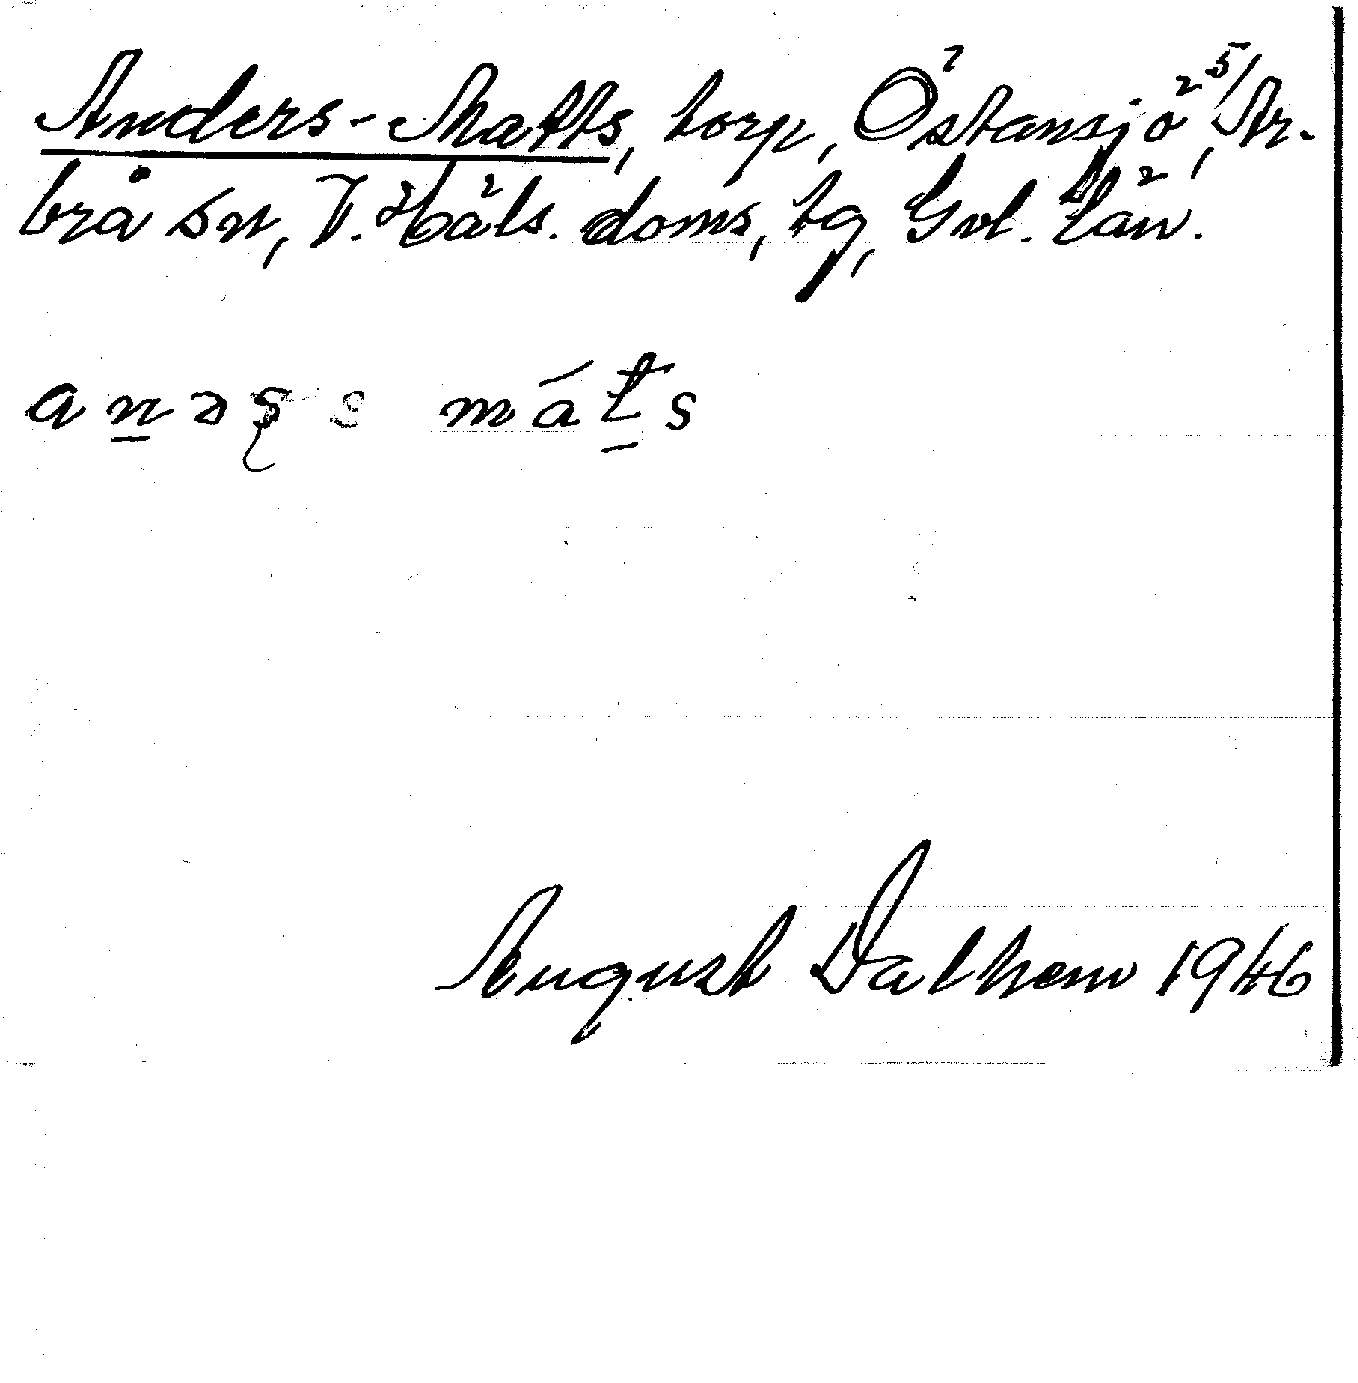 Anders-Matts, torp, Östansjö 5/, Ar-
brå sn, V. Häls. doms, tg, Gvl. län.
anəs̨ s máts
August Dalhem 1946